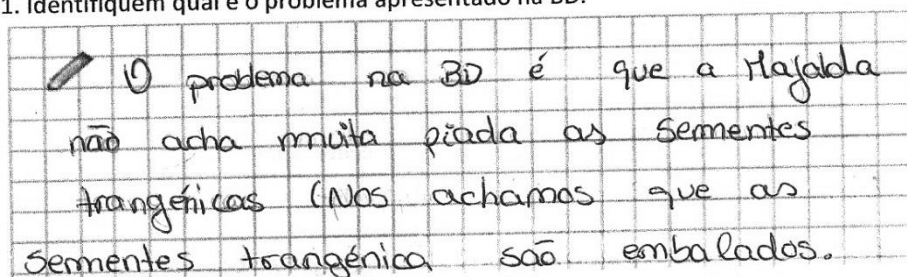 1. Identifiquem qual é o problema apresentado na BD.
O problema na BD é que a Mafalda
não acha muita piada as sementes
trangénicas (Nos achamos que as
sementes trangénica são embalados.